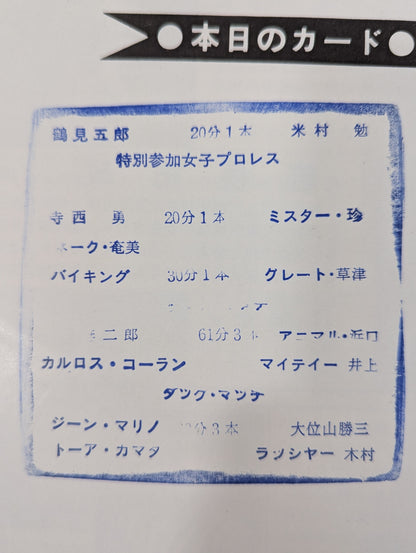 ●本日のカード●
鶴見五郎 20分1本 米村 勉
特別参加女子プロレス
寺西 勇 20分1本 ミスター・珍
ーク・奄美
バイキング 30分1本 グレート・草津
二郎 61分3本 アニマル・浜口
カルロス・コーラン マイテイー 井上
タッグ・マッチ
ジーン・マリノ 分3本 大位山勝三
トーア・カマタ ラッシヤー 木村